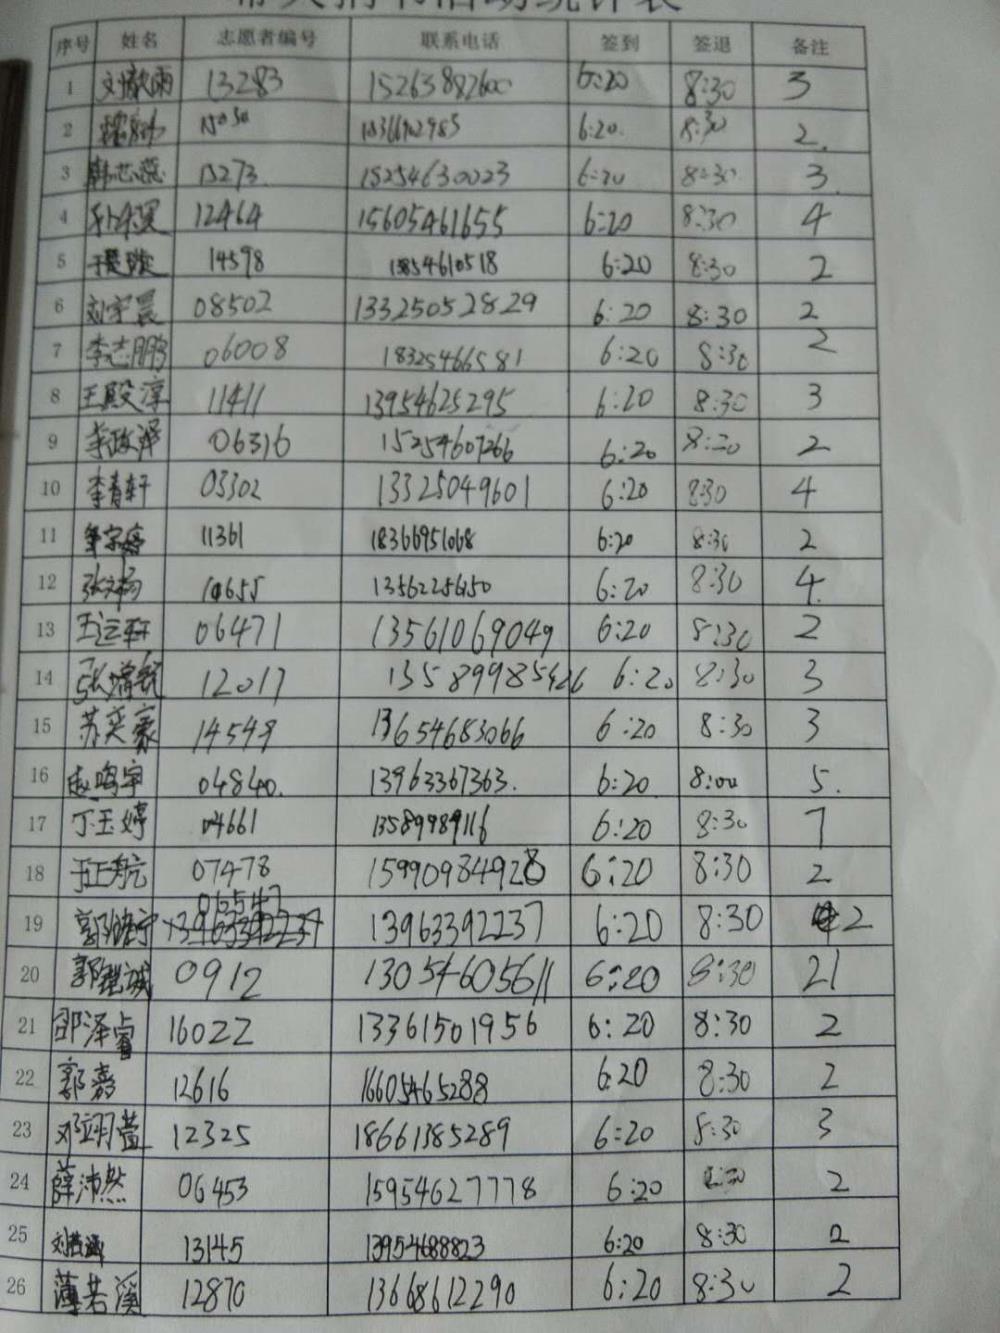 序号 姓名 志愿者编号 联系电话 签到 签退 备注
1 刘歆雨 13283 15263882600 6:20 8:30 3
2 15030 18366902985 6:20. 8:30 2.
3 韩芯蕊 13273. 15254630023 6:20 8:30 3.
4 12464 15605461655 6:20 8:30 4
5 14598 18854610518 6:20 8:30 2
6 刘宇晨 08502 13325052829 6:20 8:30 2
7 李志鹏 06008 18325466581 6:20 8:30 2
8 王殿淳 11411 13954625295 6:20 8:30 3
9 李政泽 06316 15254607266 6:20 8:20 2
10 李青轩 03302 13325049601 6:20 8:30 4
11 11361 18366951068 6:20 8:30 2
12 张文杨 10655 13562256150 6:20 8:30 4.
13 06471 13561069049 6:20 8:30 2
14 12017 135899985426 6:20 8:30 3
15 苏奕豪 14549 13654683066 6:20 8:30 3
16 赵鸣宇 04840. 13963367363. 6:20 8:00 5.
17 丁玉婷 04661 13589989116 6:20 8:30 7
18 于正航 07478 15990984928 6:20 8:30 2
19 06547 13963392237 6:20 8:30 2
20 0912 13054605611 6:20 8:30 21
21 邵泽睿 16022 13361501956 6:20 8:30 2
22 郭嘉 12616 16605465288 6:20 8:30 2
23 邓翊萱 12325 18661385289 6:20 8:30 3
24 薛沛然 06453 15954627778 6:20 8:30 2
25 13145 13954688823 6:20 8:30 2
26 薄若溪 12870 13668612290 6:20 8:30 2